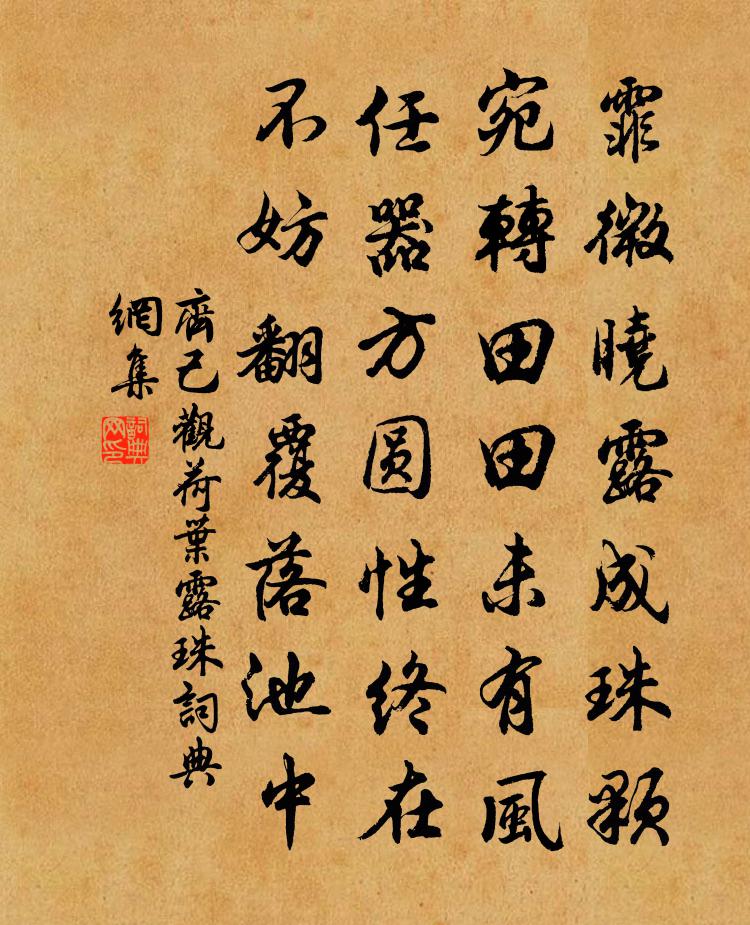 霏微曉露成珠顆
宛轉田田未有風
任器方圆性终在
不妨翻覆落池中
齊己觀荷葉露珠詞典
網集
詞典
网印